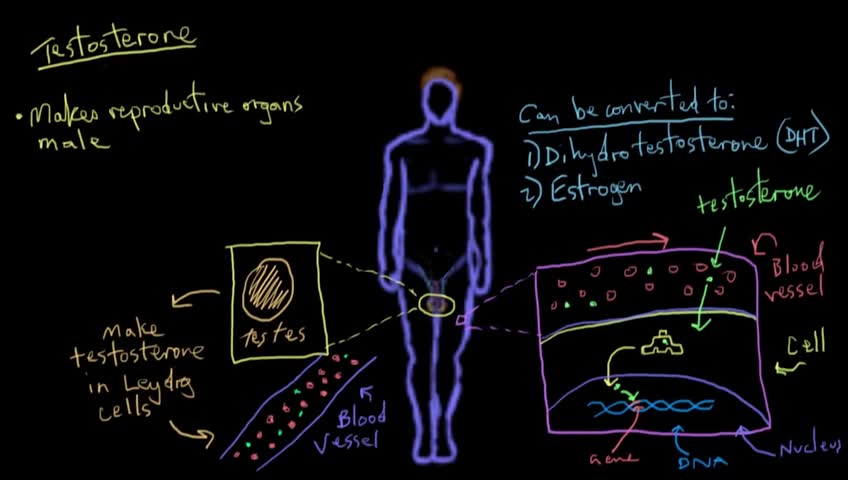 Testosterone
• Makes reproductive organs
male
Can be converted to:
1) Dihydrotestosterone (DHT)
2) Estrogen
testosterone
Blood
vessel
testes
Make
testosterone
in Leydig
cells
Blood
Vessel
Cell
Gene
DNA
Nucleus